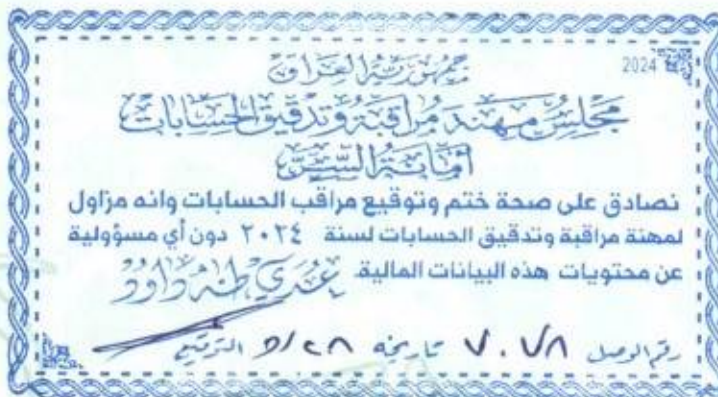 2024
جمهورية العراق
مجلس مهنة مراقبة وتدقيق الحسابات
أمانة السر
نصادق على صحة ختم وتوقيع مراقب الحسابات وانه مزاول
لمهنة مراقبة وتدقيق الحسابات لسنة ٢٠٢٤ دون أي مسؤولية
عن محتويات هذه البيانات المالية. عدي طه داود
رقم الوصل ٧٠٧٨ تاريخه ٥/٢٨ التوقيع